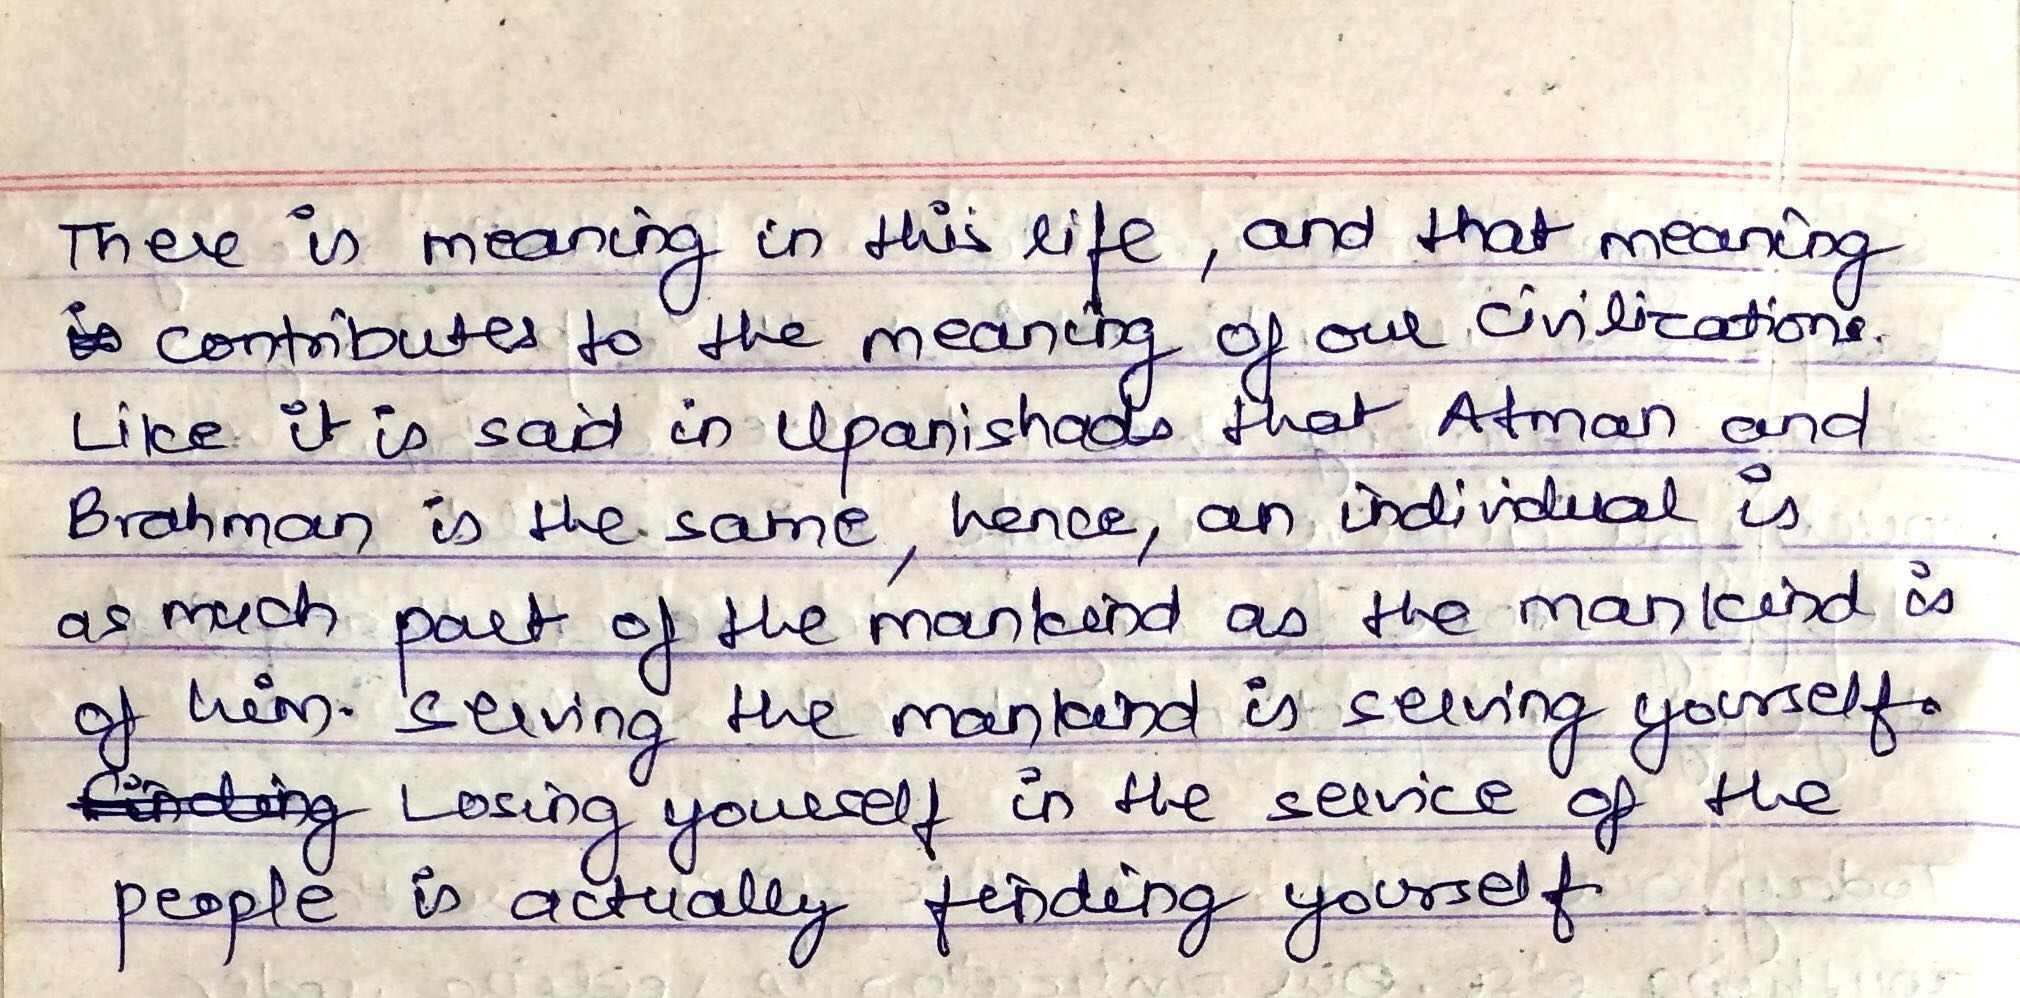 There is meaning in this life, and that meaning
is contributes to the meaning of our civilizations.
Like it is said in Upanishads that Atman and
Brahman is the same, hence, an individual is
as much part of the mankind as the mankind is
of him. Serving the mankind is serving yourself.
Finding Losing yourself in the service of the
people is actually finding yourself